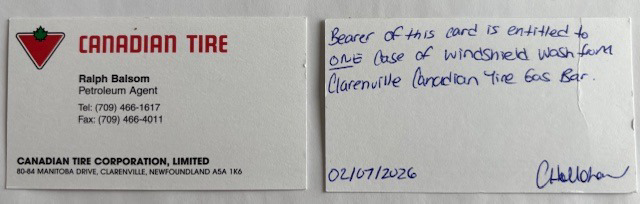 CANADIAN TIRE
Ralph Balsom
Petroleum Agent
Tel: (709) 466-1617
Fax: (709) 466-4011
CANADIAN TIRE CORPORATION, LIMITED
80-84 MANITOBA DRIVE, CLARENVILLE, NEWFOUNDLAND A5A 1K6
Bearer of this card is entitled to
ONE Case of windshield wash from
Clarenville Canadian Tire Gas Bar.
02/07/2026